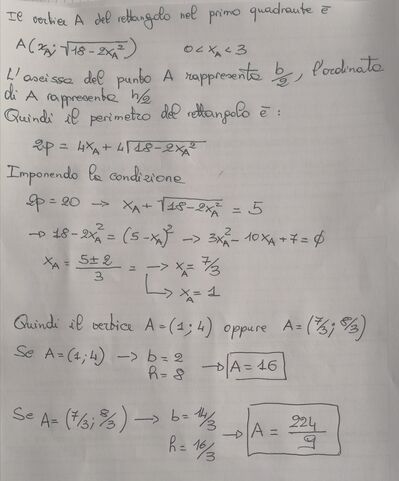 Il vertice A del rettangolo nel primo quadrante è
A(x_A; √(18-2x_A²)) 0 < x_A < 3
L'ascissa del punto A rappresenta b/2, l'ordinata
di A rappresenta h/2
Quindi il perimetro del rettangolo è:
2p = 4x_A + 4√(18-2x_A²)
Imponendo la condizione
2p = 20 → x_A + √(18-2x_A²) = 5
→ 18-2x_A² = (5-x_A)² → 3x_A² - 10x_A + 7 = ∅
x_A = (5±2)/3 = → x_A = 7/3
→ x_A = 1
Quindi il vertice A = (1; 4) oppure A = (7/3; 8/3)
Se A = (1; 4) → b = 2
h = 8 → A = 16
Se A = (7/3; 8/3) → b = 14/3
h = 16/3 → A = 224/9